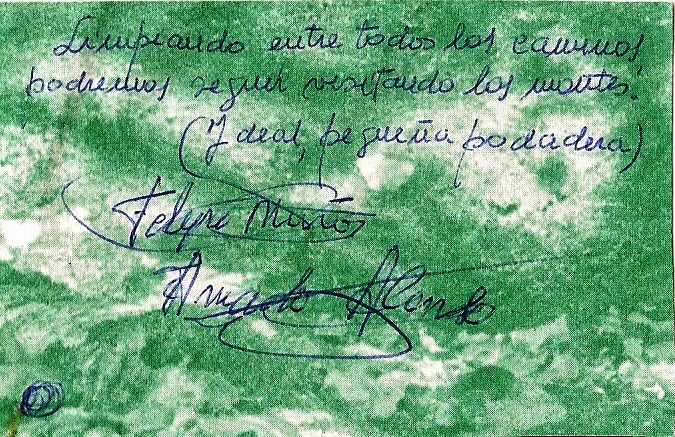 Limpiando entre todos los caminos,
podremos seguir visitando los montes.
(Ideal, pequeña podadera)
Felipe Muñoz
Amado Alonso